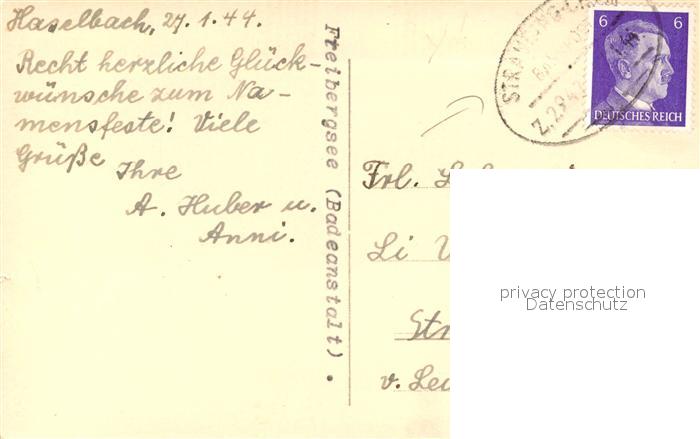 Haselbach, 27.1.44.
Recht herzliche Glück-
wünsche zum Na-
mensfeste! Viele
Grüße
Ihre
A. Huber u.
Anni.
Freibergsee (Badeanstalt).
STRAUBING
Z. 29
6 6
DEUTSCHES REICH
Frl.
Li
v.
privacy protection
Datenschutz